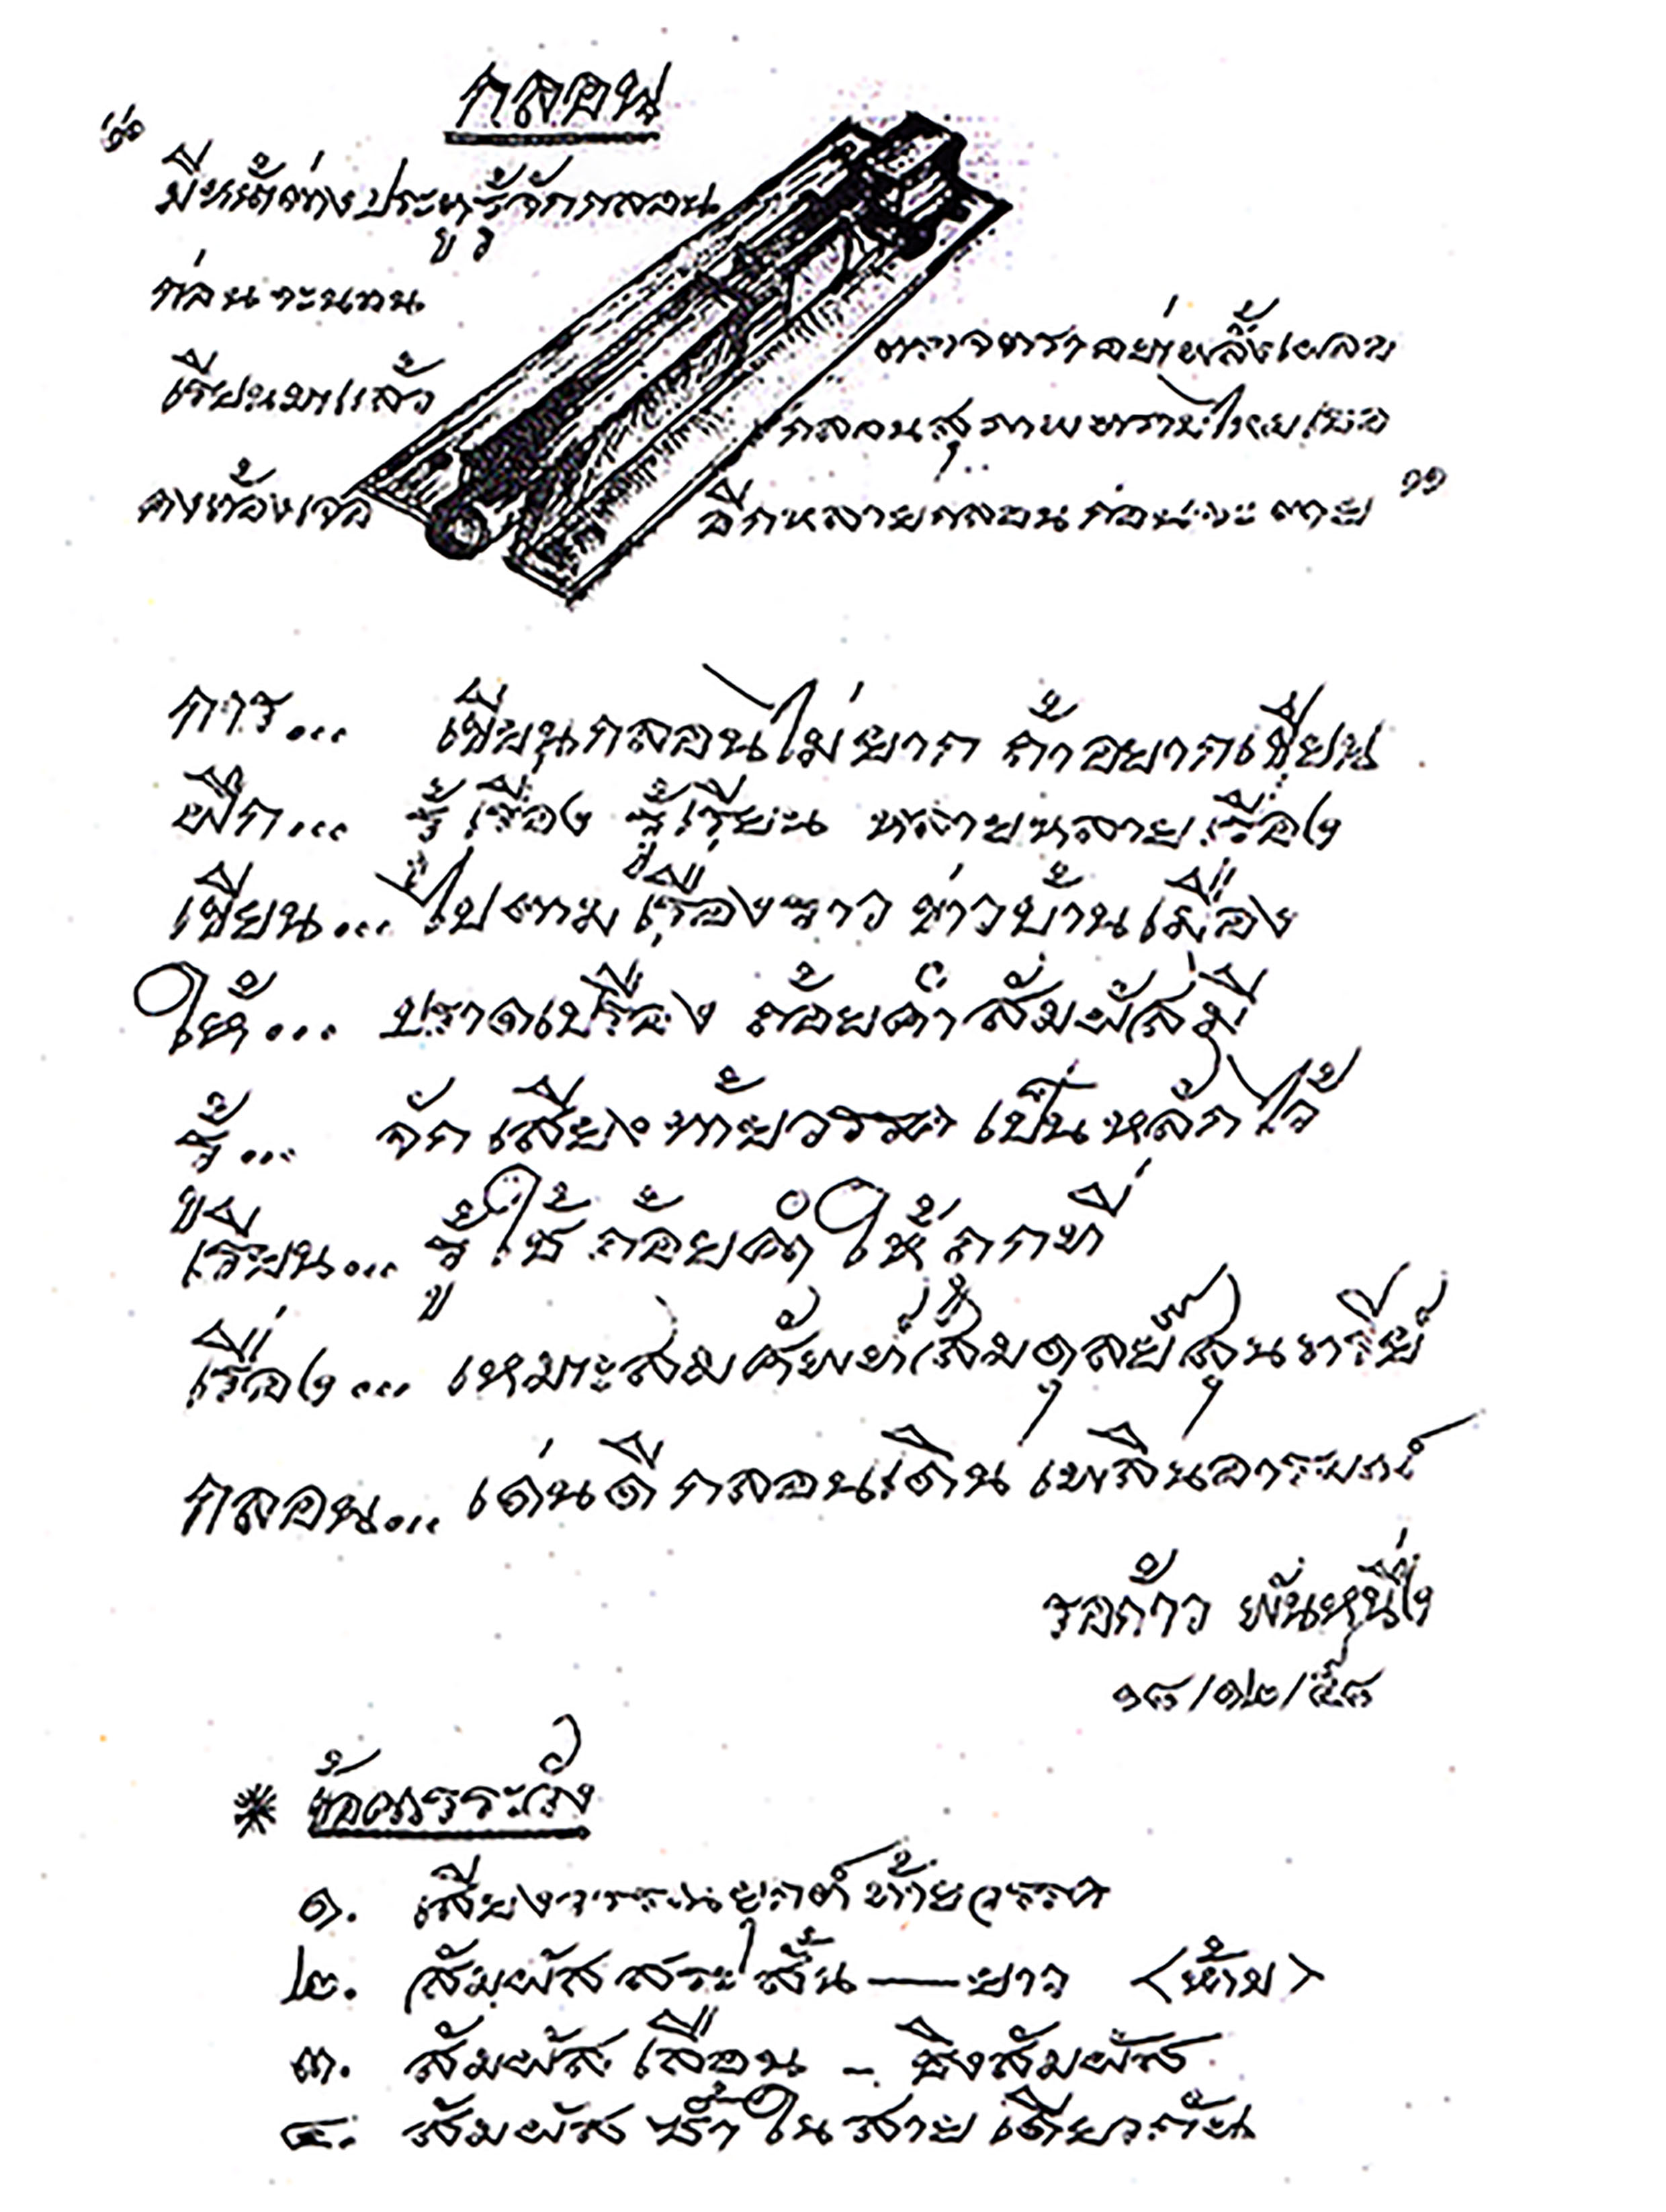 กลอน
“ มีหน้าต่างประตูรู้จักกลอน
ก่อนจะนอน
เรียนมาแล้ว
คงต้องเจอ
ตรวจตราอย่าพลั้งเผลอ
กลอนสุภาพ
อีกหลายกลอนก่อนจะตาย ”
การ... เขียนกลอนไม่ยาก ถ้าอยากเขียน
ฝึก... รู้เรื่อง รู้เรียน หลายหลายเรื่อง
เขียน... ไปตามเรื่องราว ข่าวบ้านเมือง
ให้... ปราดเปรื่อง ถ้อยคำ สัมผัสมี
รู้... จักเสียงท้ายวรรค เป็นหลักไว้
เรียน... รู้ใช้ถ้อยคำ ให้ถูกที่
เรื่อง... เหมาะสมศัพท์สมดุลย์สุนทรีย์
กลอน... เด่นดี กลอนเดิน เพลินอารมณ์
รอก้าว พันหนึ่ง
๑๘/๑๒/๕๘
* ข้อควรระวัง
๑. เสียงวรรณยุกต์ท้ายวรรค
๒. สัมผัสสระสั้น — ยาว <ห้าม>
๓. สัมผัสเลือน - ชิงสัมผัส
๔. สัมผัสซ้ำในสายเดียวกัน